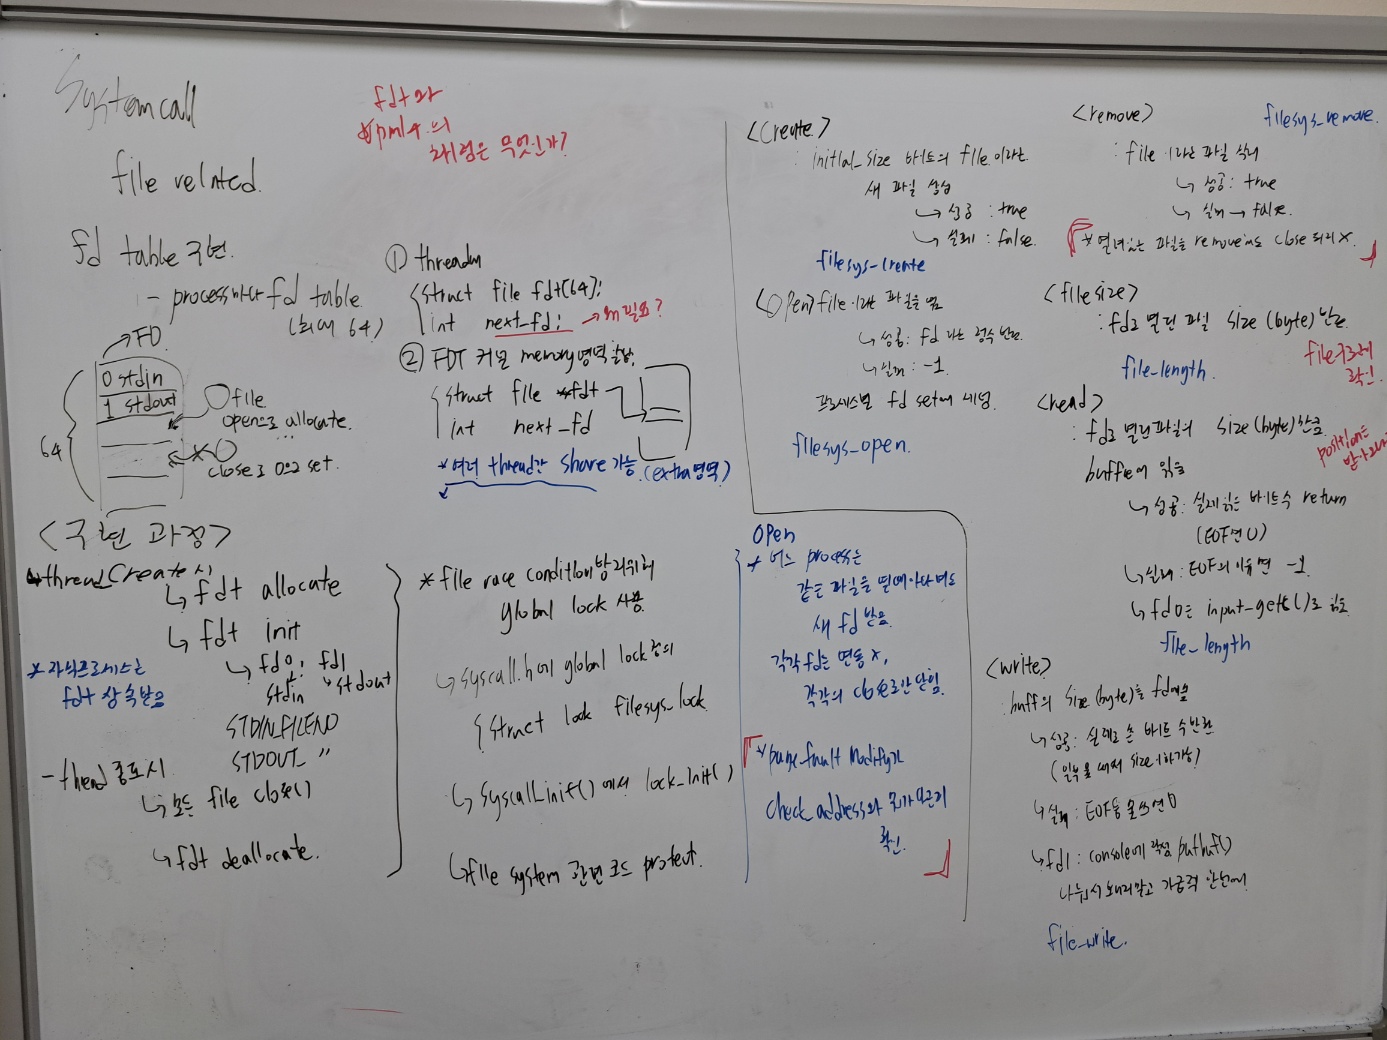 System call
file related.
fdt와
*pml4의
차이점은 무엇인가?
fd table 구현.
- process마다 fd table
(최대 64)
FD
0 stdin
1 stdout
64
file
open으로 allocate.
close로 0으로 set.
① thread.h
struct file fdt[64];
int next_fd; → 왜 필요?
② FDT 커널 memory영역 할당.
struct file *fdt
int next_fd
*여러 thread간 share 가능. (extra영역)
<구현 과정>
thread_create 시
↳ fdt allocate
↳ fdt init
↳ fd0: fd1
stdin ↳ stdout
STDIN_FILENO
STDOUT_ 〃
* 자식프로세스는
fdt 상속받음
- thread 종료시
↳ 모든 file close()
↳ fdt deallocate.
* file race condition방지위해
global lock 사용.
↳ syscall.h에 global lock 정의
struct lock filesys_lock.
↳ syscall_init()에서 lock_init()
↳ file system 관련 코드 protect.
<create>
: initial_size 바이트의 file 이라는
새 파일 생성
↳ 성공 : true
↳ 실패 : false.
filesys_create
<open> file 이라는 파일을 엶
↳ 성공: fd 라는 정수 반환.
↳ 실패 : -1.
프로세스별 fd set에 세팅.
filesys_open.
open
* 어느 process든
같은 파일을 열때마다
새 fd 받음.
각각 fd는 연동 x,
각각의 close로만 닫힘.
* page_fault modify와
check_address와 뭐가
확인.
<remove>
filesys_remove.
: file 이라는 파일 삭제
↳ 성공: true
↳ 실패 → false.
* 열려있는 파일을 remove해도 close 되지 x.
<filesize>
: fd로 열린 파일 size (byte) 반환
file_length.
file구조체
확인.
<read>
: fd로 열린파일의 size(byte)만큼
buffer에 읽음
↳ 성공: 실제 읽은 바이트 수 return
(EOF면 0)
↳ 실패 : EOF외 이유면 -1.
↳ fd 0은 input_getc()로 읽음
file_length
position는
<write>
: buff의 size(byte)를 fd에 씀
↳ 성공: 실제로 쓴 바이트 수 반환
↳ 실패 : EOF등 못쓰면 0
↳ fd1 : console에 작성 putbuf()
file_write.